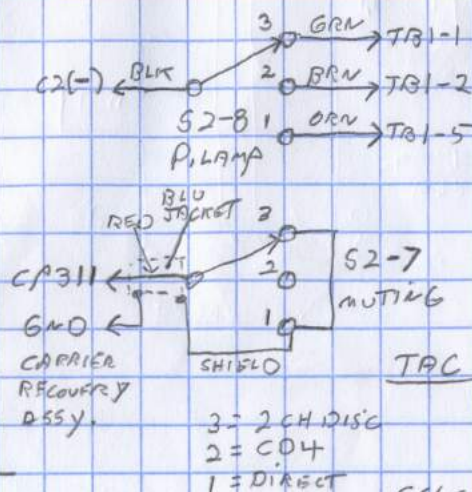 3 GRN TB1-1
C2(-) BLK 2 BRN TB1-2
S2-8 1 ORN TB1-5
P.LAMP
BLU
JACKET
RED
3
CP311 2 S2-7
MUTING
1
GND
SHIELD
CARRIER
RECOVERY
ASSY.
TAC
3 = 2 CH DISC
2 = CD4
1 = DIRECT